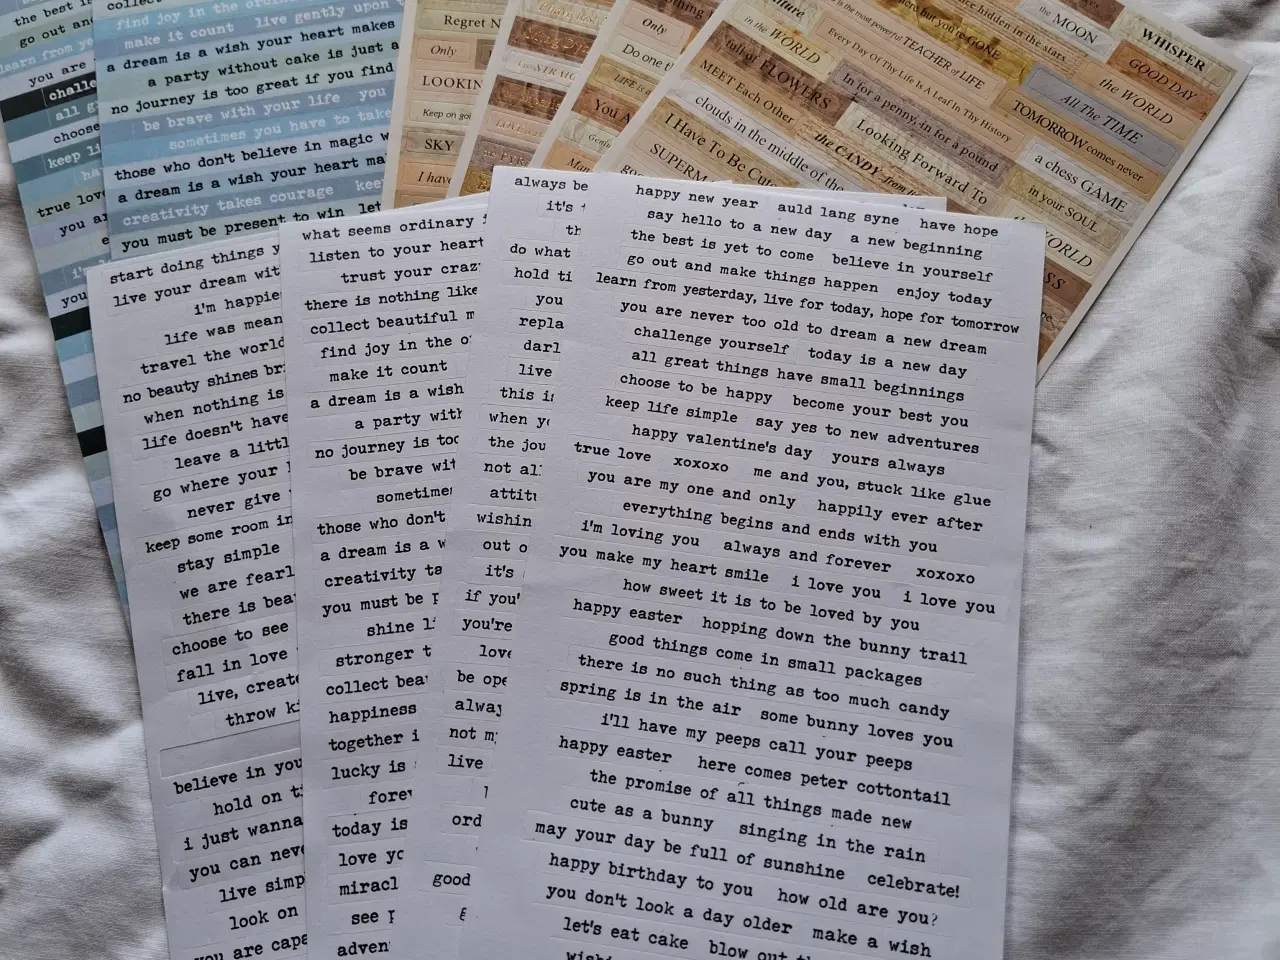 the best is
go out and
learn from ye
you are
challe
all g
choose
keep li
true love
you ar
you
collec
find joy in the ord live gently upon t
make it count
a dream is a wish your heart makes
a party without cake is just a
no journey is too great if you find
be brave with your life you
sometimes you have to take
those who don't believe in magic w
a dream is a wish your heart ma
creativity takes courage keep
you must be present to win let
Regret N
Only
LOOKIN
Keep on goi
SKY
I have
Only
Do one t
LIFE is a
You A
in the WORLD
full of FLOWERS
MEET Each Other
clouds in the middle of the
I Have To Be Cute
SUPERM
is the most powerful TEACHER of LIFE
Every Day Of Thy Life Is A Leaf In Thy History
In for a penny, in for a pound
the CANDY from
Looking Forward To
here but you're GONE
hidden in the stars
TOMORROW comes never
a chess GAME
in your SOUL
WORLD
the MOON
WHISPER
GOOD DAY
the WORLD
All The TIME
start doing things y
live your dream wit
i'm happie
life was mean
travel the world
no beauty shines bri
when nothing is
life doesn't have
leave a littl
go where your
never give
keep some room in
stay simple
we are fearl
there is bea
choose to see
fall in love
live, create
throw ki
believe in you
hold on ti
i just wanna
you can neve
live simp
look on
you are capa
what seems ordinary i
listen to your heart
trust your craz
there is nothing like
collect beautiful m
find joy in the o
make it count
a dream is a wish
a party with
no journey is too
be brave wit
sometimes
those who don't
a dream is a w
creativity ta
you must be p
shine li
stronger t
collect beau
happiness
together i
lucky is
forev
today is
love yo
miracl
see p
adven
always be
it's
th
do what
hold ti
you
repla
darl
live
this is
when yo
the jou
not al
attitu
wishin
out o
it's
if you'
you're
love
be ope
alway
not my
live
ord
good
happy new year auld lang syne have hope
say hello to a new day a new beginning
the best is yet to come believe in yourself
go out and make things happen enjoy today
learn from yesterday, live for today, hope for tomorrow
you are never too old to dream a new dream
challenge yourself today is a new day
all great things have small beginnings
choose to be happy become your best you
keep life simple say yes to new adventures
happy valentine's day yours always
true love xoxoxo me and you, stuck like glue
you are my one and only happily ever after
everything begins and ends with you
i'm loving you always and forever xoxoxo
you make my heart smile i love you i love you
how sweet it is to be loved by you
happy easter hopping down the bunny trail
good things come in small packages
there is no such thing as too much candy
spring is in the air some bunny loves you
i'll have my peeps call your peeps
happy easter here comes peter cottontail
the promise of all things made new
cute as a bunny singing in the rain
may your day be full of sunshine celebrate!
happy birthday to you how old are you?
you don't look a day older make a wish
let's eat cake blow out th
wishi